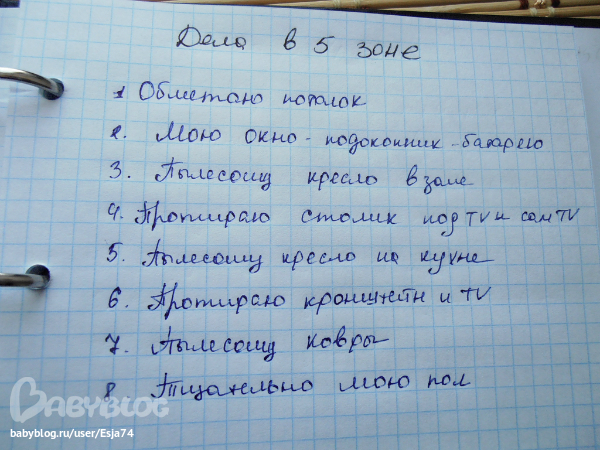 Дела в 5 зоне
1 Обметаю потолок
2. Мою окно - подоконник - батарею
3. Пылесошу кресло в зале
4. Протираю столик под TV и сам TV
5. Пылесошу кресло на кухне
6. Протираю кронштейн и TV
7. Пылесошу ковры
8 Тщательно мою пол
BABYBLOG
babyblog.ru/user/Esja74